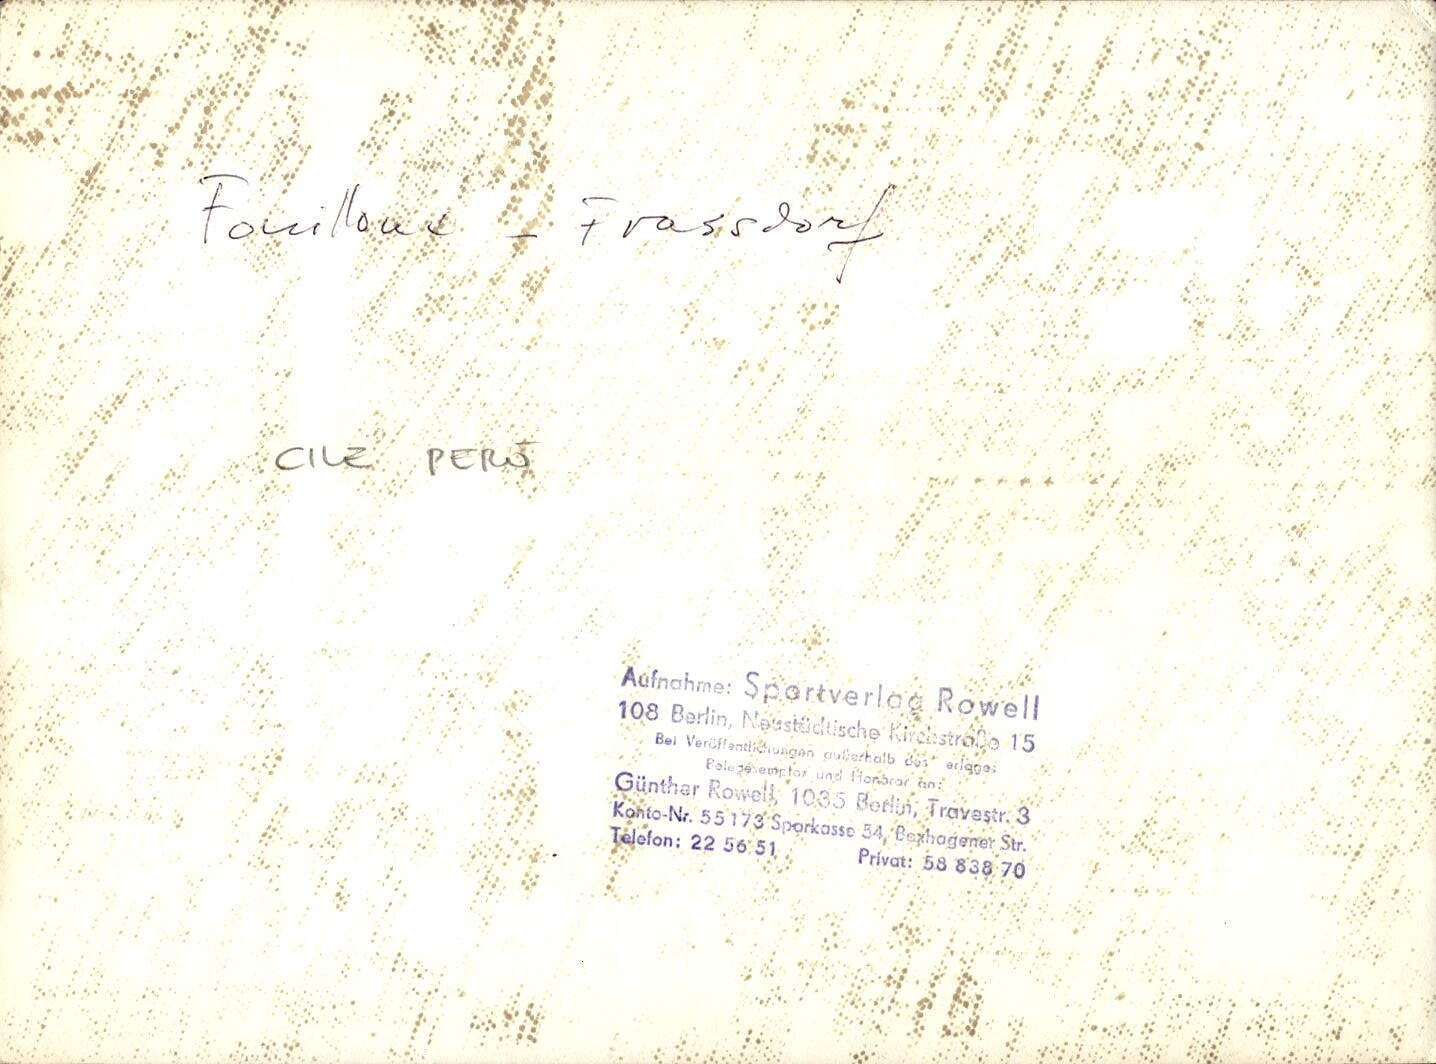 Fouilloux - Frassdorf
CILE PERÙ
Aufnahme: Sportverlag Rowell
108 Berlin, Neustädtische Kirchstraße 15
Bei Veröffentlichungen außerhalb des erlages
Belegexemplar und Honorar an:
Günther Rowell, 1035 Berlin, Travestr. 3
Konto-Nr. 55173 Sparkasse 54, Boxhagener Str.
Telefon: 22 56 51 Privat: 58 838 70